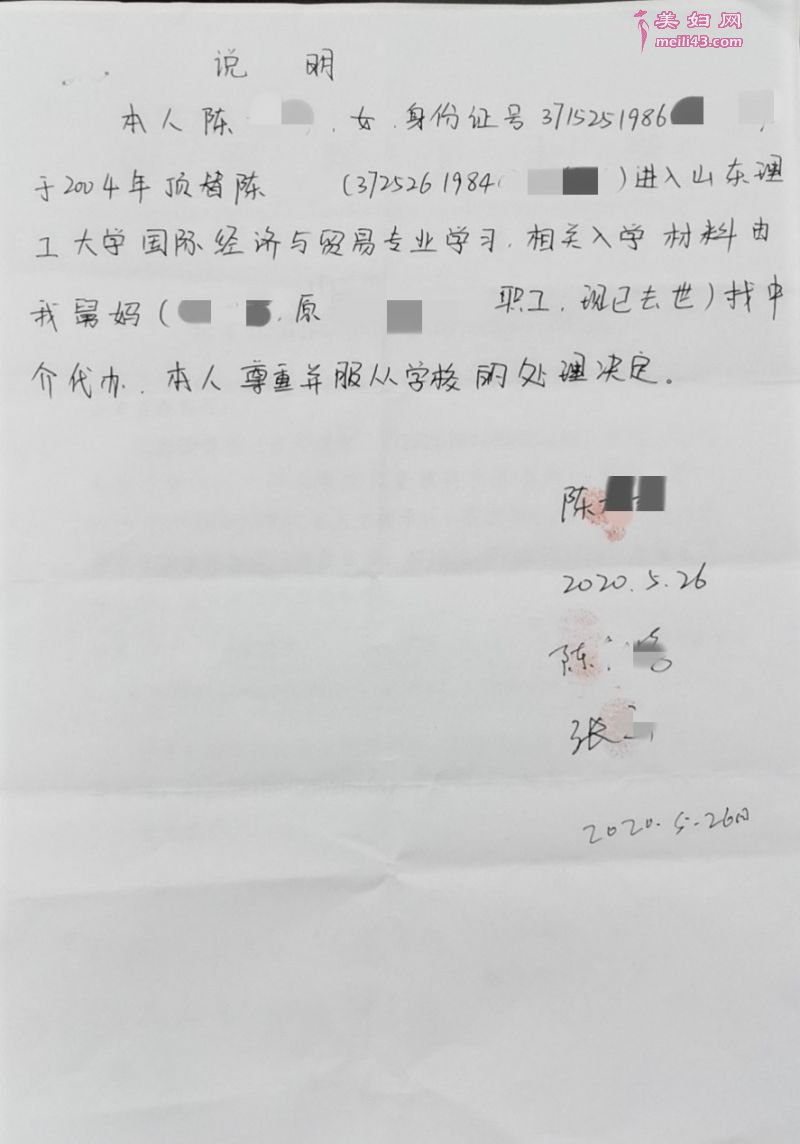 美妇网
meili43.com
说 明
本人陈 ,女,身份证号3715251986 ,
于2004年顶替陈 (3725261984 )进入山东理
工大学国际经济与贸易专业学习,相关入学材料由
我舅妈( ,原 职工,现已去世)找中
介代办.本人尊重并服从学校的处理决定。
陈
2020.5.26
陈
张
2020.5.26日